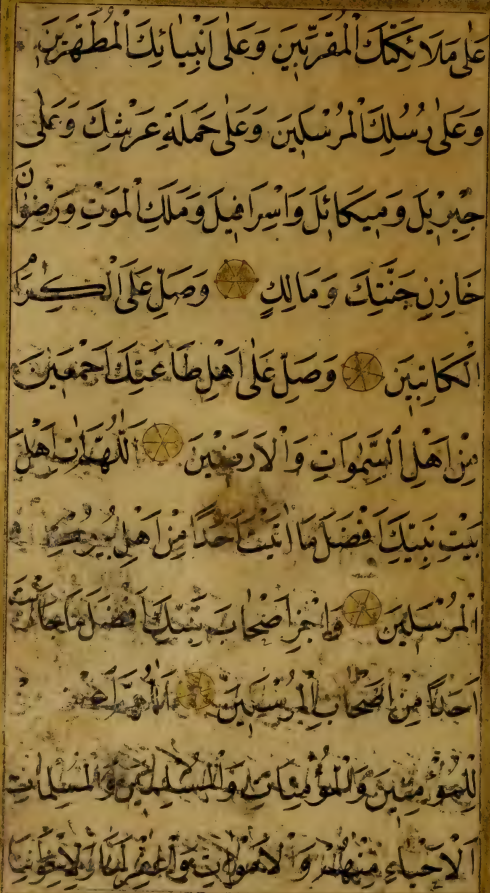 عَلٰى مَلَائِكَتِكَ الْمُقَرَّبِينَ وَعَلٰى اَنْبِيَائِكَ الْمُطَهَّرِينَ
وَعَلٰى رُسُلِكَ الْمُرْسَلِينَ وَعَلٰى حَمَلَةِ عَرْشِكَ وَعَلٰى
جِبْرِيلَ وَمِيكَائِلَ وَاِسْرَافِيلَ وَمَلَكِ الْمَوْتِ وَرِضْوَانَ
خَازِنِ جَنَّتِكَ وَمَالِكٍ وَصَلِّ عَلَى الْكِرَامِ
الْكَاتِبِينَ وَصَلِّ عَلٰى اَهْلِ طَاعَتِكَ اَجْمَعِينَ
مِنْ اَهْلِ السَّمٰوَاتِ وَالْاَرَضِينَ اَللّٰهُمَّ اٰتِ اَهْلَ
بَيْتِ نَبِيِّكَ اَفْضَلَ مَا اٰتَيْتَ اَحَدًا مِنْ اَهْلِ بُيُوتِ
الْمُرْسَلِينَ وَاجْزِ اَصْحَابَ نَبِيِّكَ اَفْضَلَ مَا جَازَيْتَ
اَحَدًا مِنْ اَصْحَابِ الْمُرْسَلِينَ اَللّٰهُمَّ اغْفِرْ
لِلْمُؤْمِنِينَ وَالْمُؤْمِنَاتِ وَالْمُسْلِمِينَ وَالْمُسْلِمَاتِ
اَلْاَحْيَاءِ مِنْهُمْ وَالْاَمْوَاتِ وَاغْفِرْ لَنَا وَلِاِخْوَانِنَا